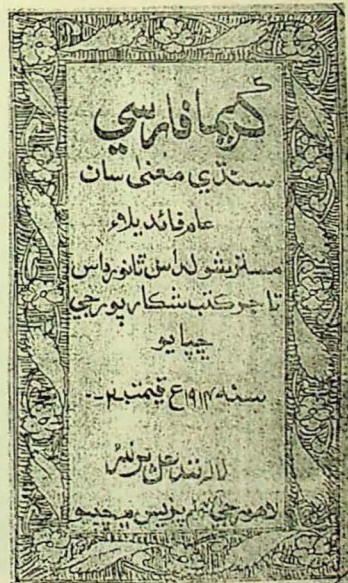 ڪريما فارسي
سنڌي معنيٰ سان
عام فائدي لاءِ
مسٽر شولداس ٿانورداس
تاجر ڪتب شڪارپور جي
ڇپايو
سنه ۱۹۱۴ع قيمت
لاله نند لعل پرنٽر
لاهور جي پريس ۾ ڇپيو